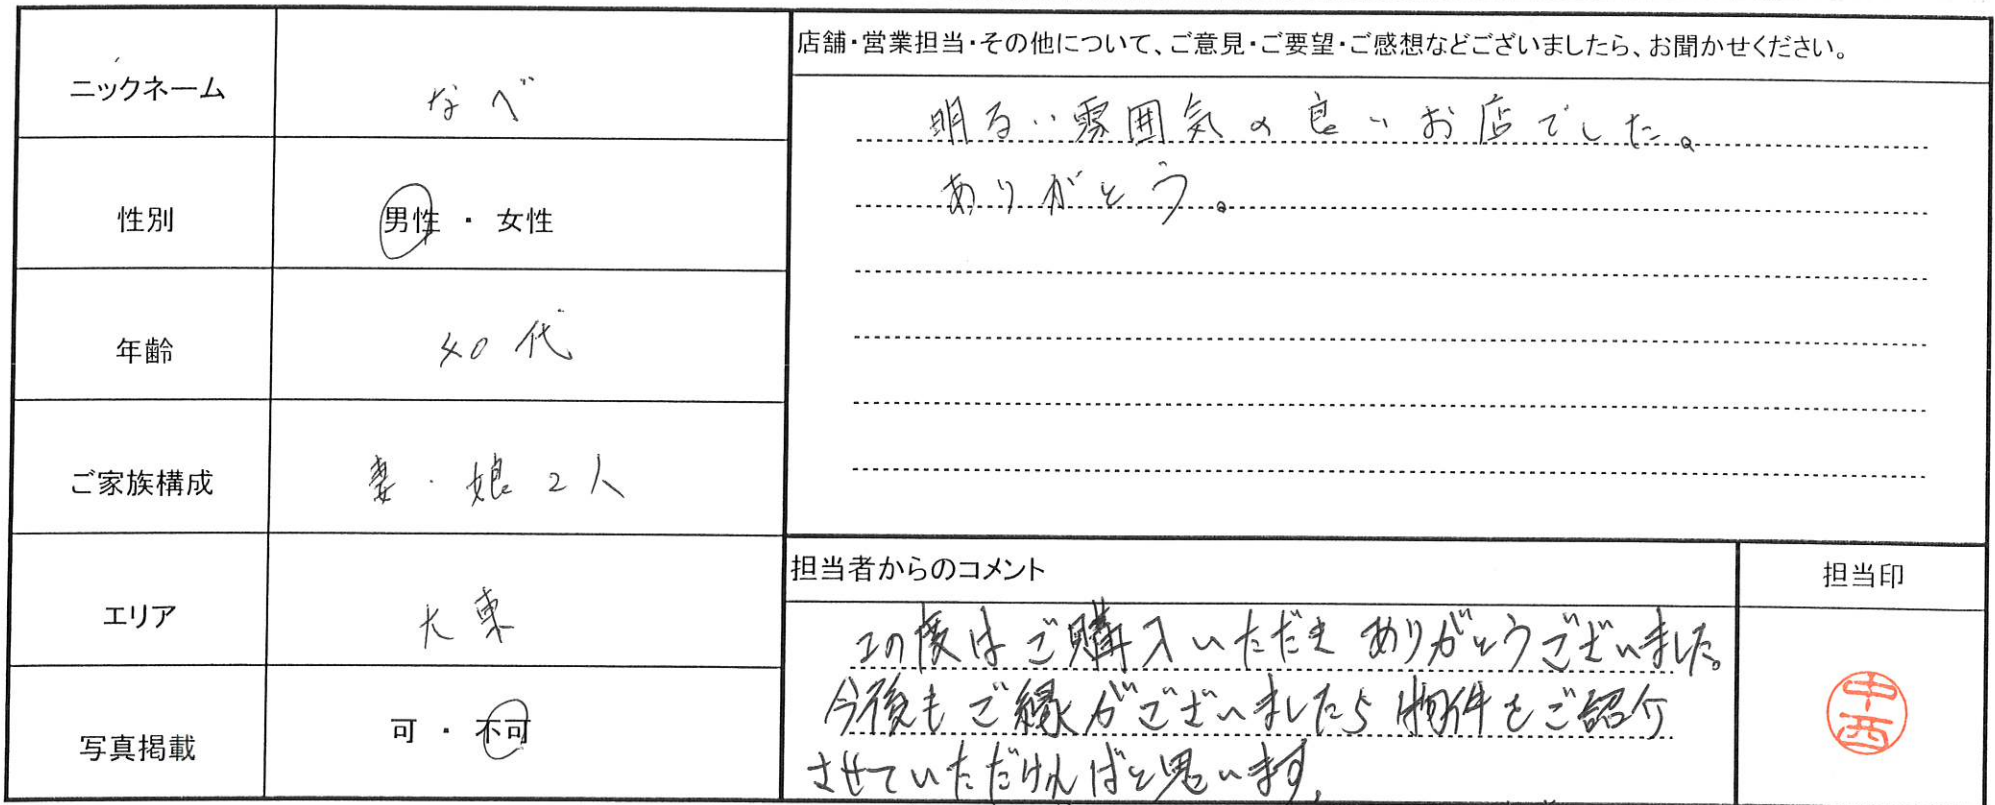 ニックネーム
なべ
性別
男性 ・ 女性
年齢
40代
ご家族構成
妻・娘2人
エリア
大東
写真掲載
可 ・ 不可
店舗・営業担当・その他について、ご意見・ご要望・ご感想などございましたら、お聞かせください。
明るい雰囲気の良いお店でした。
ありがとう。
担当者からのコメント
この度はご購入いただき ありがとうございました。
今後もご縁がございましたら物件をご紹介
させていただければと思います。
担当印
中西